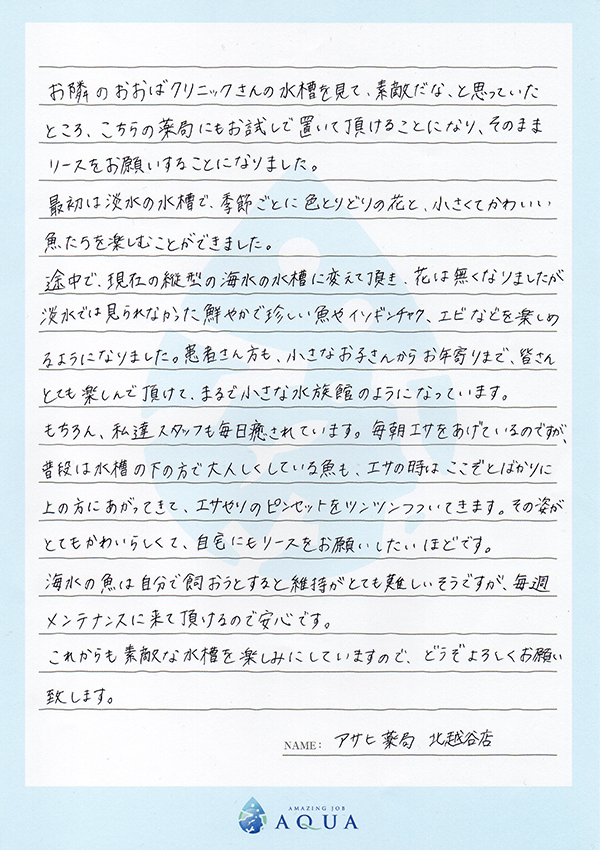 お隣のおおばクリニックさんの水槽を見て、素敵だな、と思っていた
ところ、こちらの薬局にもお試しで置いて頂けることになり、そのまま
リースをお願いすることになりました。
最初は淡水の水槽で、季節ごとに色とりどりの花と、小さくてかわいい
魚たちを楽しむことができました。
途中で、現在の縦型の海水の水槽に変えて頂き、花は無くなりましたが
淡水では見られなかった鮮やかで珍しい魚やイソギンチャク、エビなどを楽しめ
るようになりました。患者さん方も、小さなお子さんからお年寄りまで、皆さん
とても楽しんで頂けて、まるで小さな水族館のようになっています。
もちろん、私達スタッフも毎日癒されています。毎朝エサをあげているのですが、
普段は水槽の下の方で大人しくしている魚も、エサの時はここぞとばかりに
上の方にあがってきて、エサやりのピンセットをツンツンつついてきます。その姿が
とてもかわいらしくて、自宅にもリースをお願いしたいほどです。
海水の魚は自分で飼おうとすると維持がとても難しいそうですが、毎週
メンテナンスに来て頂けるので安心です。
これからも素敵な水槽を楽しみにしていますので、どうぞよろしくお願い
致します。
NAME: アサヒ薬局 北越谷店
AMAZING JOB
AQUA